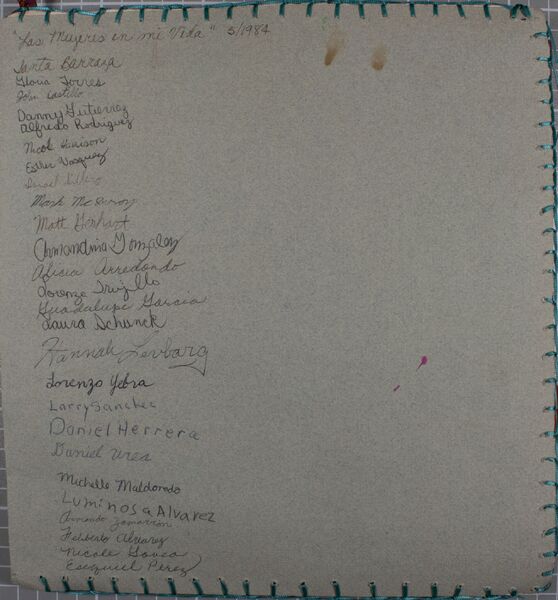 "Las Mujeres en mi Vida" 5/1984
Santa Barraza
Gloria Torres
John Castillo
Danny Gutierrez
Alfredo Rodriguez
Nicole Garison
Esther Vasquez
Mark
Matt Gerhart
Armandina Gonzalez
Alicia Arredondo
Lorenzo Trujillo
Guadalupe Garcia
Laura Schunck
Hannah Levbarg
Lorenzo Ybra
Larry Sanchez
Daniel Herrera
Daniel Urea
Michelle Maldonado
Luminosa Alvarez
Armando Zamarron
Feliberto Alvarez
Nicole
Esequiel Perez